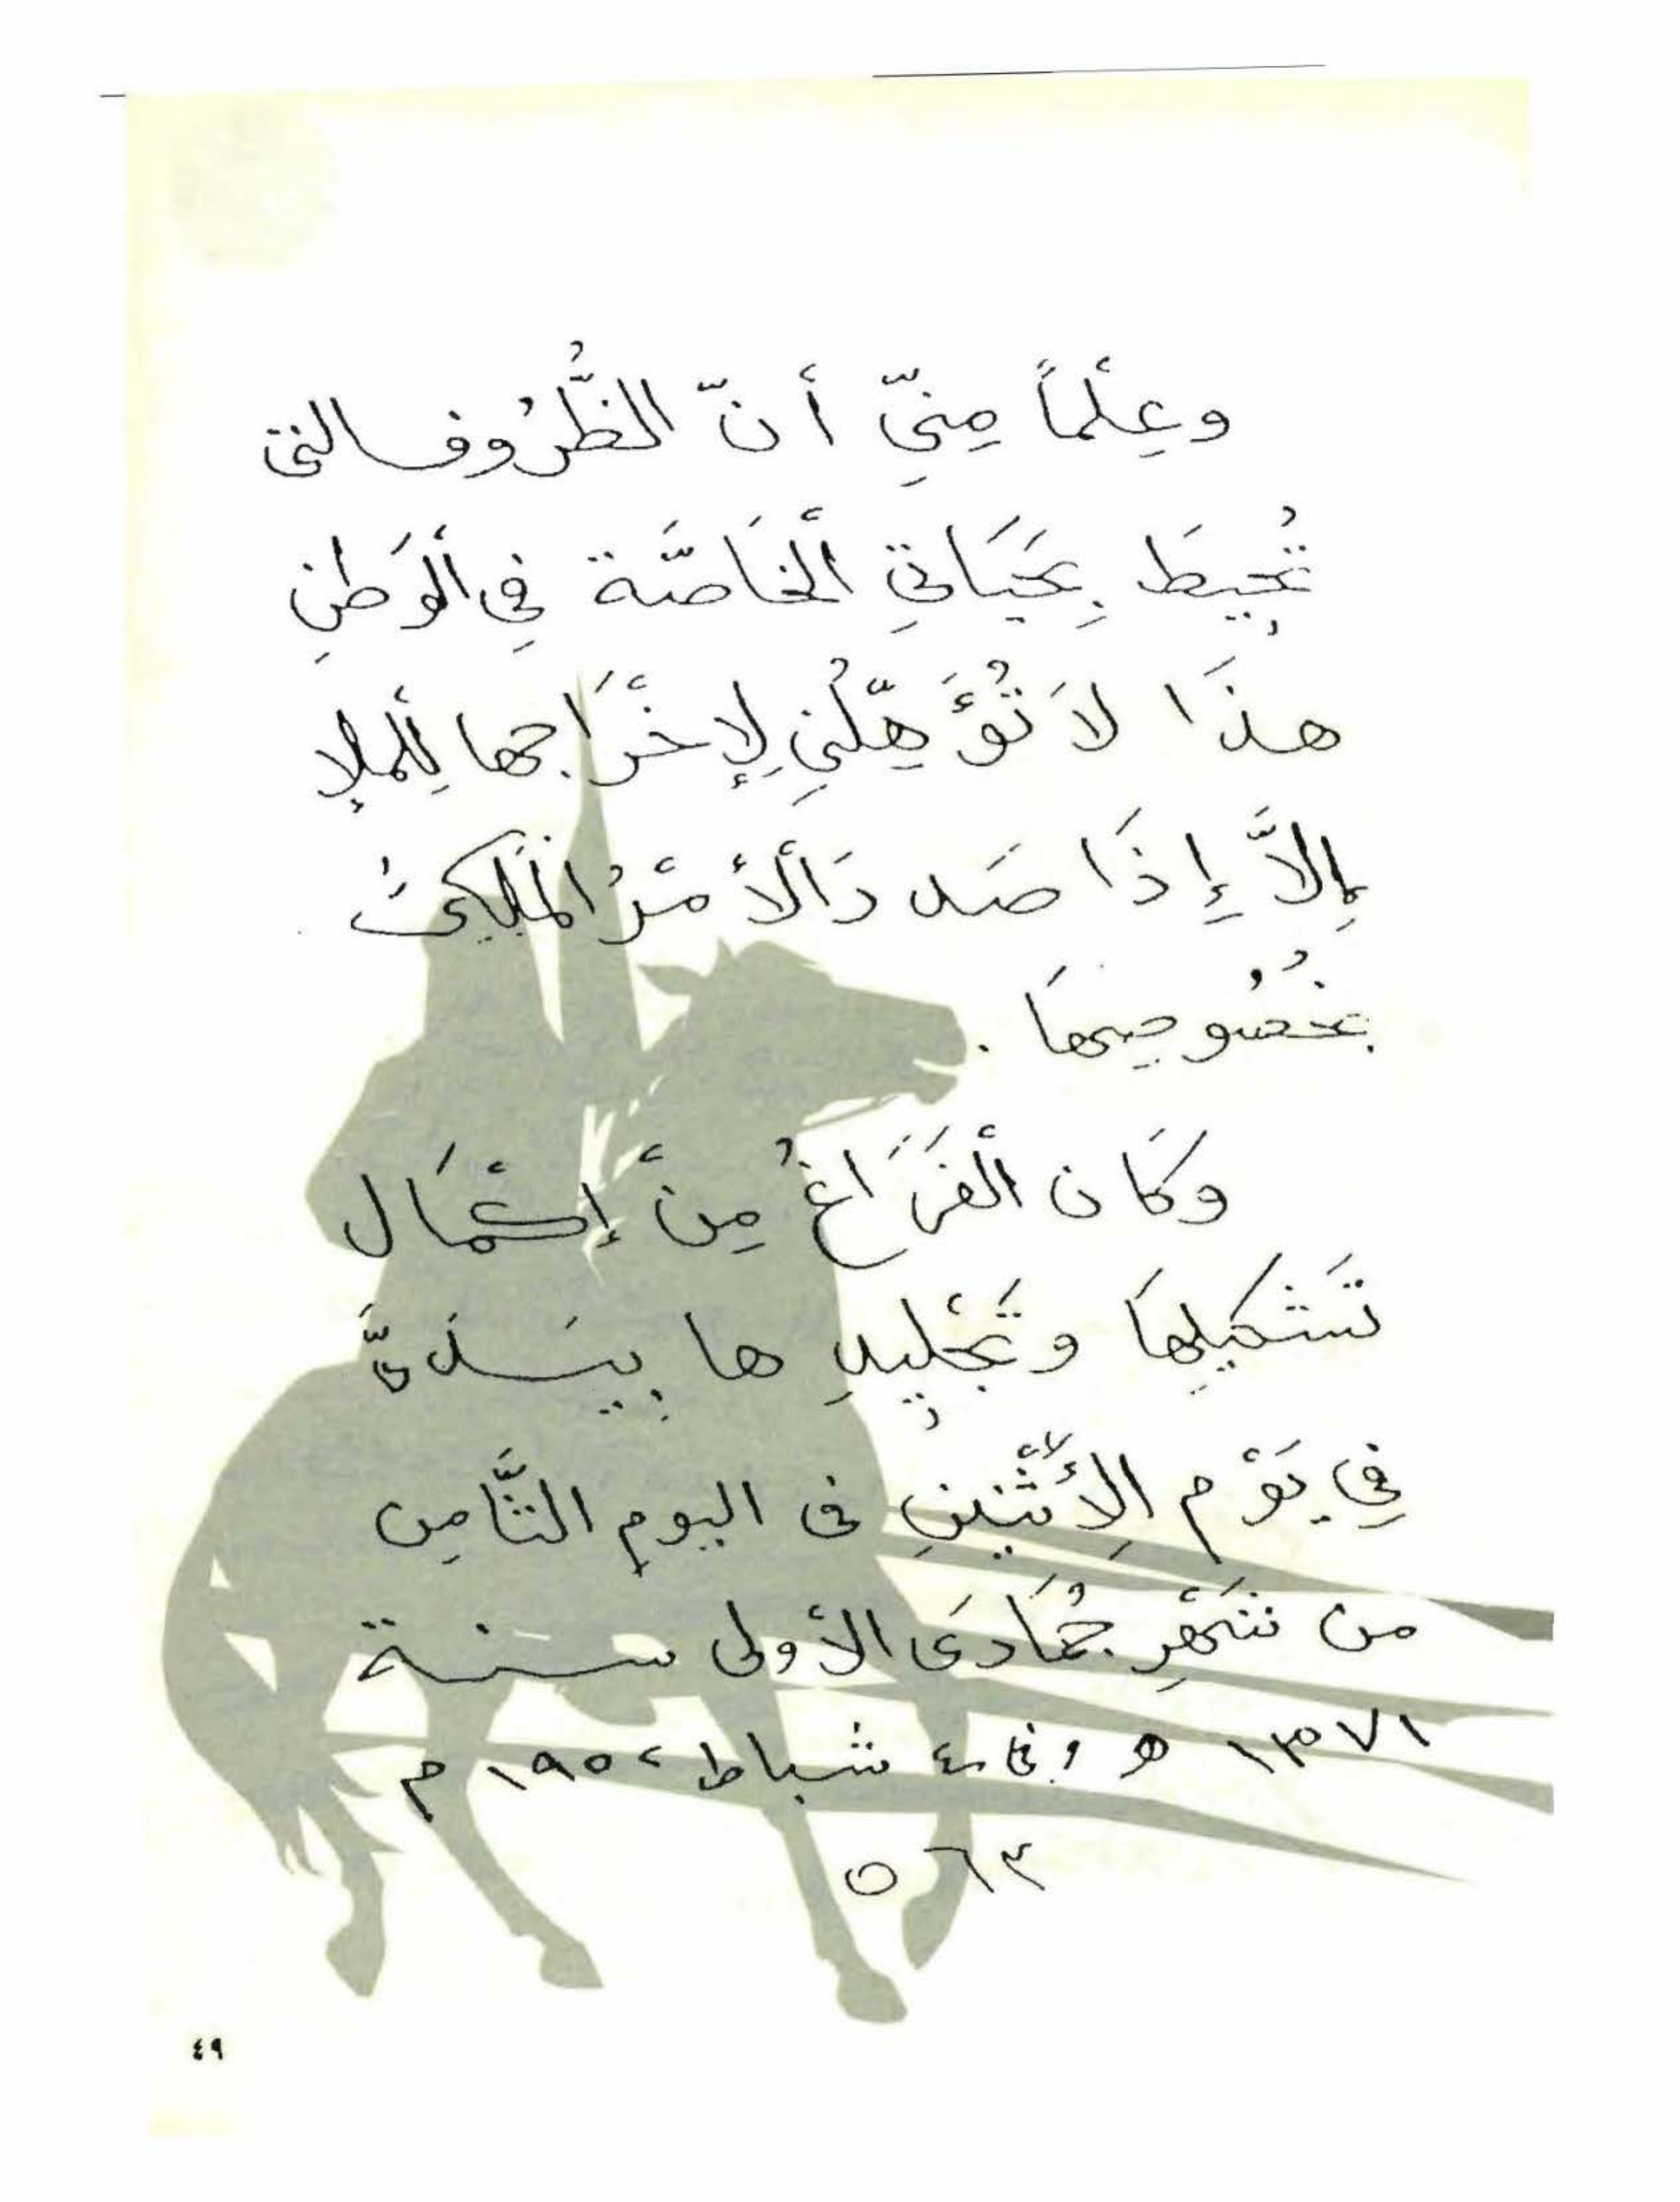 وعِلْماً مِنِّي أنّ الظُّرُوف التي
تُحِيطَ بِحَيَاتِي اْلخَاصَّة فِي اْلوَطنِ
هذَا لاَ تُؤَهِّلُنِي لِإخْرَاجها لِلملإ
إِلاَّ إِذَا صَدرَ اْلأمْرُ المَلَكِيُّ
بخُصُوصِهَا .
وكَان اْلفَرَاغُ مِنْ إكْمَال
تَشكيلِهَا وتَجْلِيدِها بِيَدَيَّ
فِي يَوْم الِأثْنينِ فى اليومِ الثَّامِن
من شَهْرِ جُمَادَى الأولى سنة
١٣٧١ ه وفي ٤ شباط ١٩٥٢ م
٥٦٣
٤٩